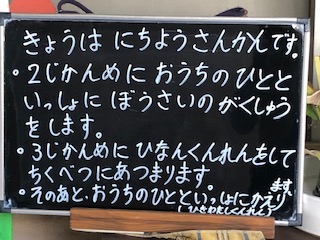 きょうは にちようさんかんです。
・2じかんめに おうちのひとと
いっしょに ぼうさいの がくしゅう
をします。
・3じかんめに ひなんくんれんをして
ちくべつにあつまります。
・そのあと、おうちのひとといっしょにかえり
ます。
(ひきわたしくんれん)